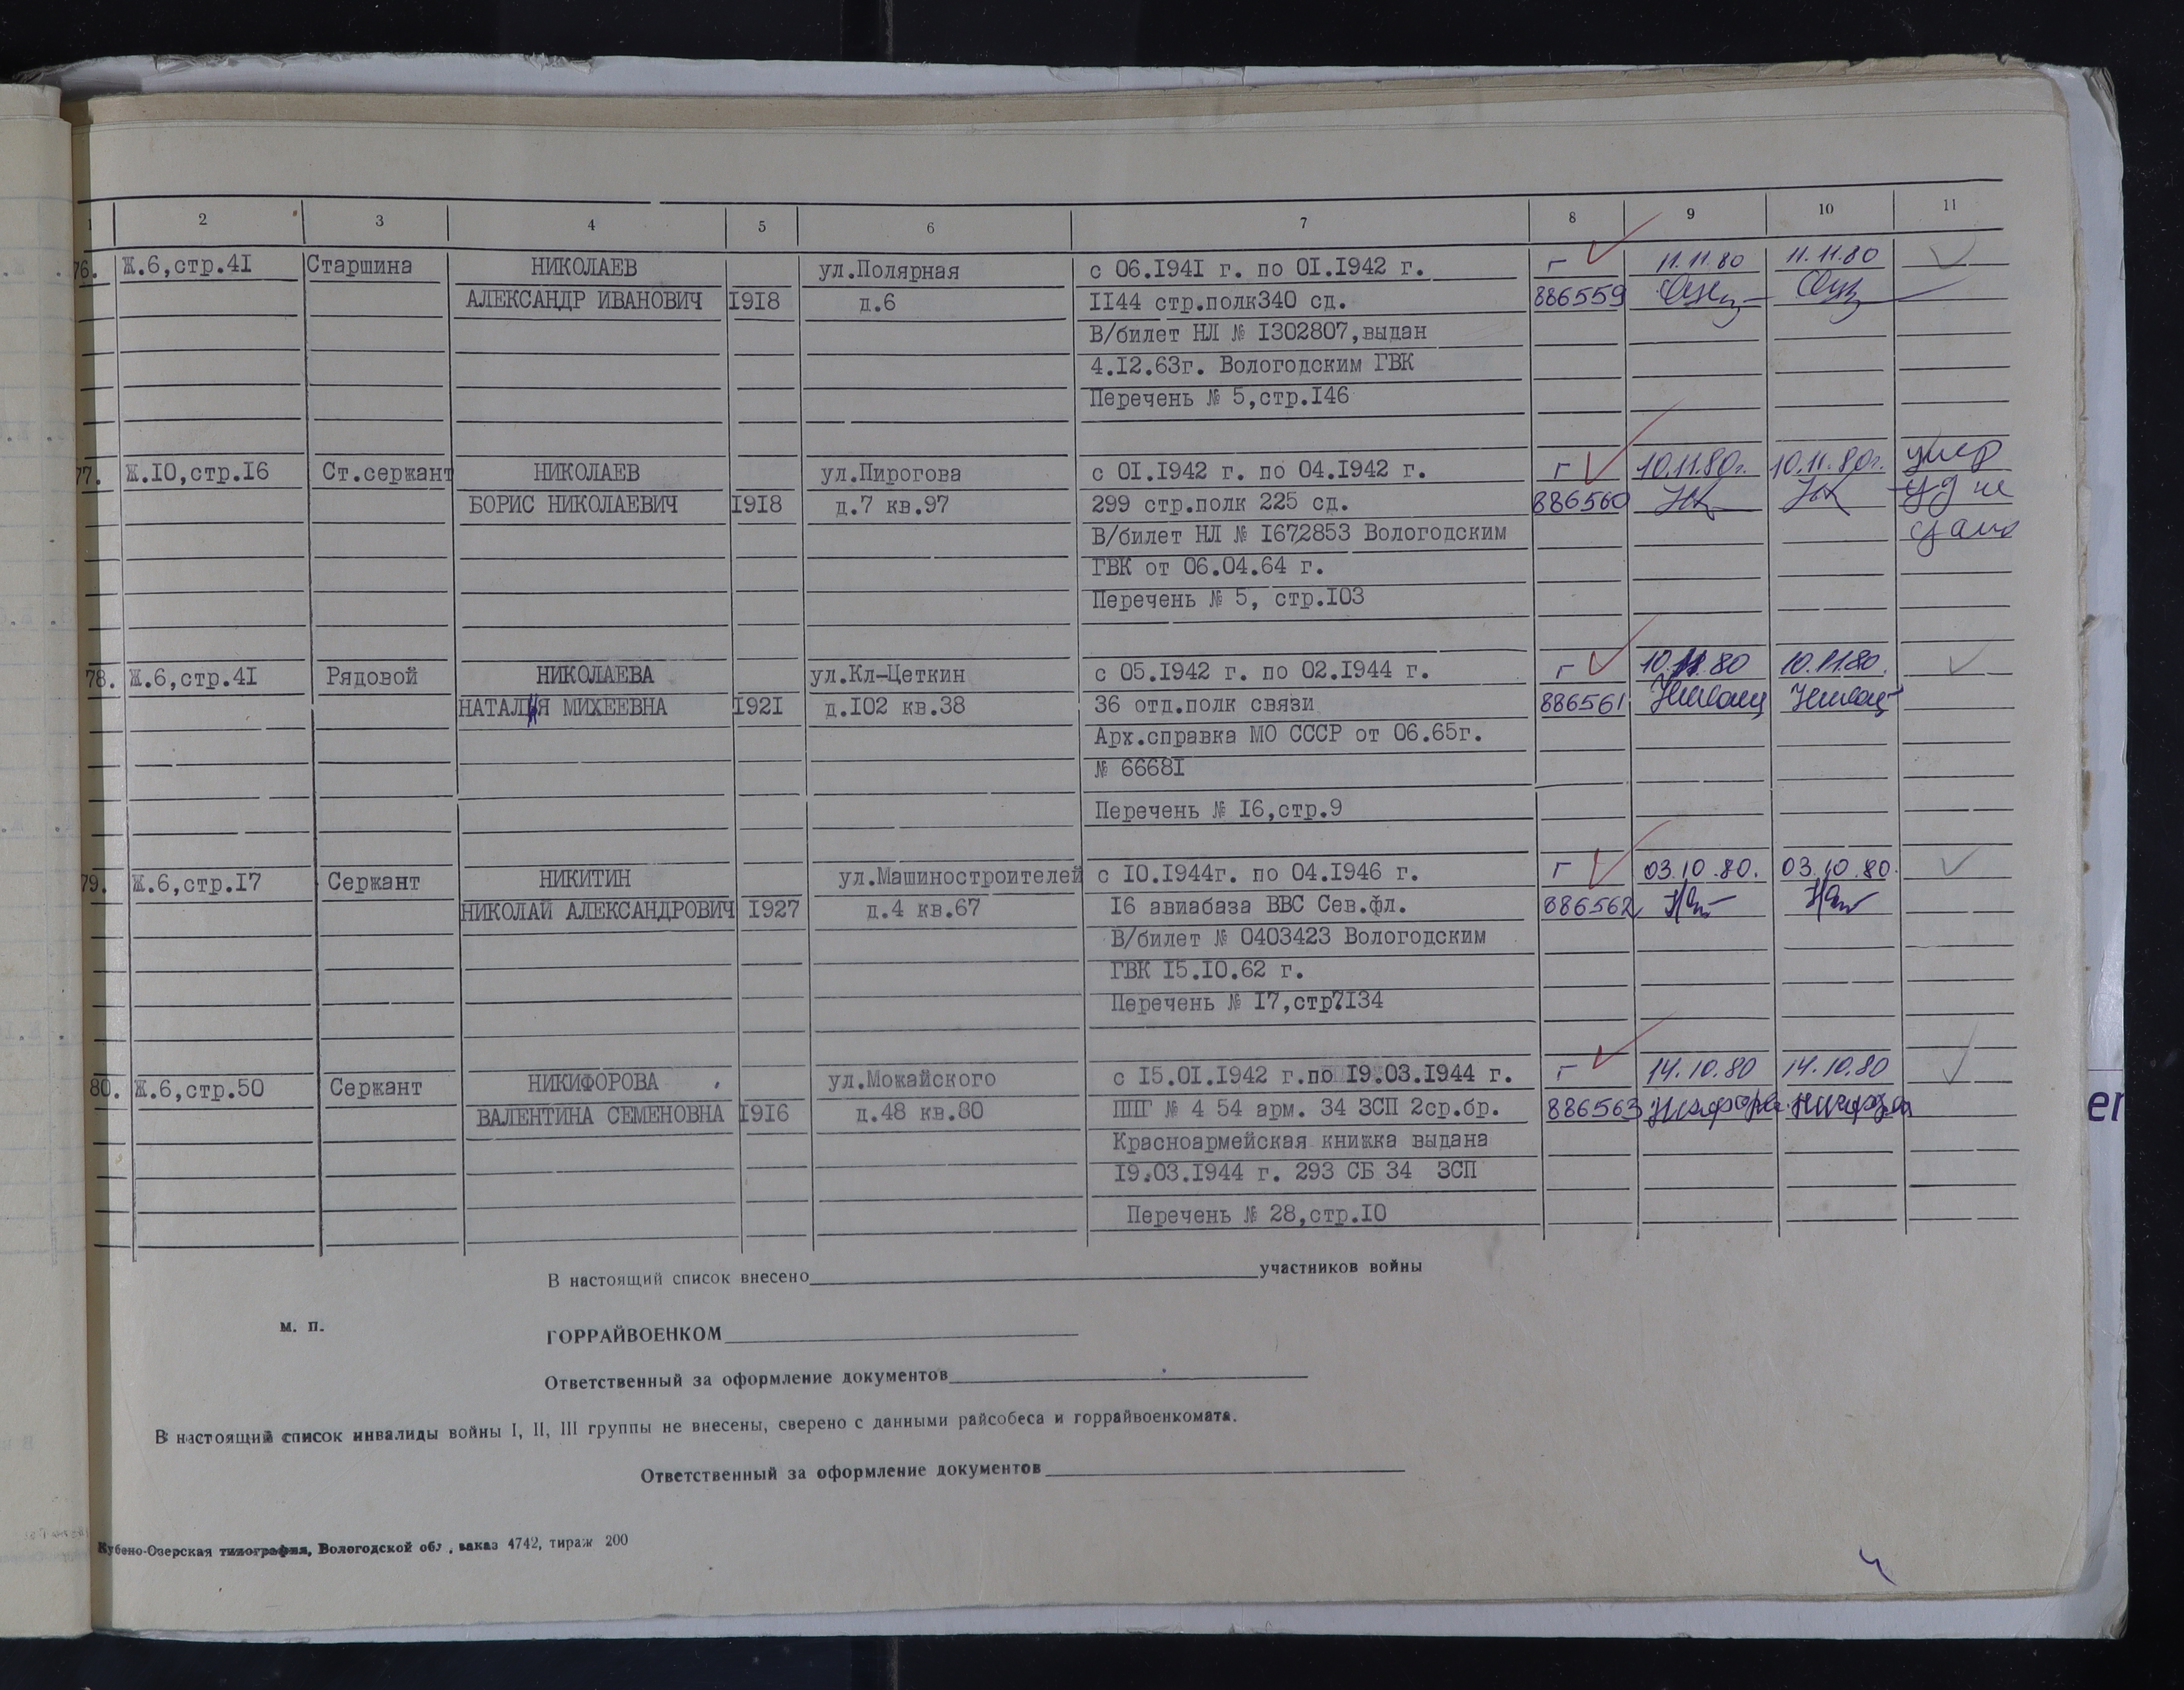 1 2 3 4 5 6 7 8 9 10 11
76. Ж.6,стр.41 Старшина НИКОЛАЕВ ул.Полярная с 06.1941 г. по 01.1942 г. г 11.11.80 11.11.80
АЛЕКСАНДР ИВАНОВИЧ 1918 д.6 1144 стр.полк340 сд. 886559
В/билет НЛ № 1302807,выдан
4.12.63г. Вологодским ГВК
Перечень № 5,стр.146
77. Ж.10,стр.16 Ст.сержант НИКОЛАЕВ ул.Пирогова с 01.1942 г. по 04.1942 г. г 10.11.80г. 10.11.80г. умер
БОРИС НИКОЛАЕВИЧ 1918 д.7 кв.97 299 стр.полк 225 сд. 886560 уд не
В/билет НЛ № 1672853 Вологодским сдано
ГВК от 06.04.64 г.
Перечень № 5, стр.103
78. Ж.6,стр.41 Рядовой НИКОЛАЕВА ул.Кл-Цеткин с 05.1942 г. по 02.1944 г. г 10.11.80 10.11.80.
НАТАЛЬЯ МИХЕЕВНА 1921 д.102 кв.38 36 отд.полк связи 886561
Арх.справка МО СССР от 06.65г.
№ 66681
Перечень № 16,стр.9
79. Ж.6,стр.17 Сержант НИКИТИН ул.Машиностроителей с 10.1944г. по 04.1946 г. г 03.10.80. 03.10.80.
НИКОЛАЙ АЛЕКСАНДРОВИЧ 1927 д.4 кв.67 16 авиабаза ВВС Сев.фл. 886562
В/билет № 0403423 Вологодским
ГВК 15.10.62 г.
Перечень № 17,стр7134
80. Ж.6,стр.50 Сержант НИКИФОРОВА ул.Можайского с 15.01.1942 г.по 19.03.1944 г. г 14.10.80 14.10.80
ВАЛЕНТИНА СЕМЕНОВНА 1916 д.48 кв.80 ППГ № 4 54 арм. 34 ЗСП 2ср.бр. 886563
Красноармейская книжка выдана
19.03.1944 г. 293 СБ 34 ЗСП
Перечень № 28,стр.10
В настоящий список внесено участников войны
м. п. ГОРРАЙВОЕНКОМ
Ответственный за оформление документов
В настоящий список инвалиды войны I, II, III группы не внесены, сверено с данными райсобеса и горрайвоенкомата.
Ответственный за оформление документов
Кубено-Озерская типография, Вологодской обл, заказ 4742, тираж 200